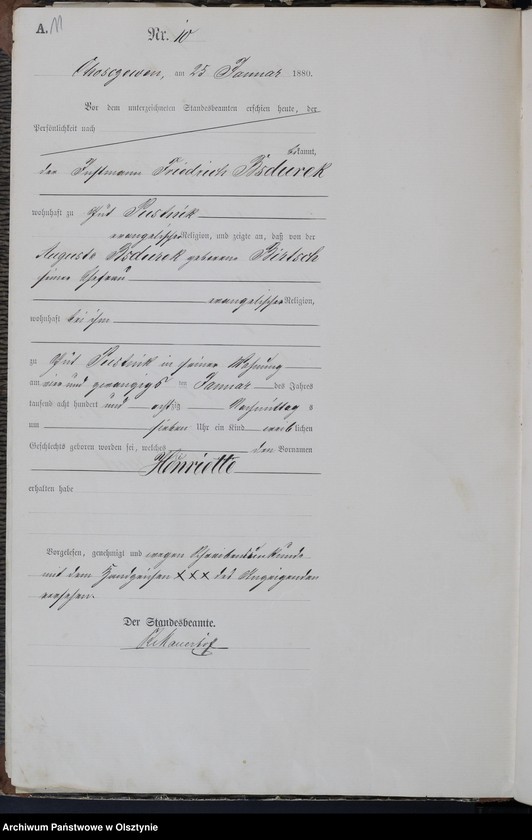 A. 11
Nr. 10
Choszczewen, am 25 Januar 1880.
Vor dem unterzeichneten Standesbeamten erschien heute, der
Persönlichkeit nach
bekannt,
der Instmann Friedrich Bsdurek
wohnhaft zu Gut Pustnik
evangelischer Religion, und zeigte an, daß von der
Auguste Bsdurek geborene Birtsch
seiner Ehefrau
evangelischer Religion,
wohnhaft bei ihm
zu Gut Pustnik in seiner Wohnung
am ein und zwanzigs ten Januar des Jahres
tausend acht hundert und achtzig Nachmittag s
um sieben Uhr ein Kind weiblichen
Geschlechts geboren worden sei, welches den Vornamen
Henriette
erhalten habe
Vorgelesen, genehmigt und wegen Schreibensunkunde
mit dem Handzeichen XXX des Anzeigenden
versehen.
Der Standesbeamte.
Archiwum Państwowe w Olsztynie